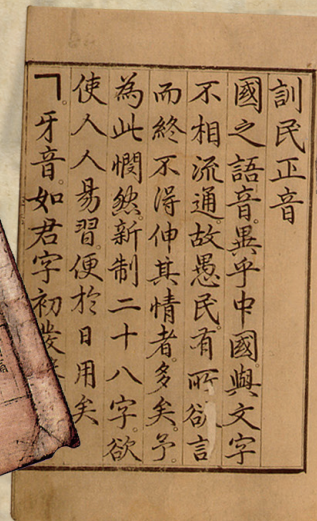 訓民正音
國之語音。異乎中國。與文字
不相流通。故愚民。有所欲言
而終不得伸其情者。多矣。予。
為此憫然。新制二十八字。欲
使人人易習。便於日用矣
ㄱ。牙音。如君字初發